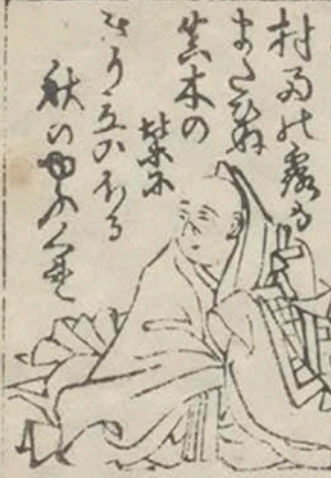 村雨の露も
まだひぬ
真木の
葉に
きり立のぼる
秋の夕ぐれ